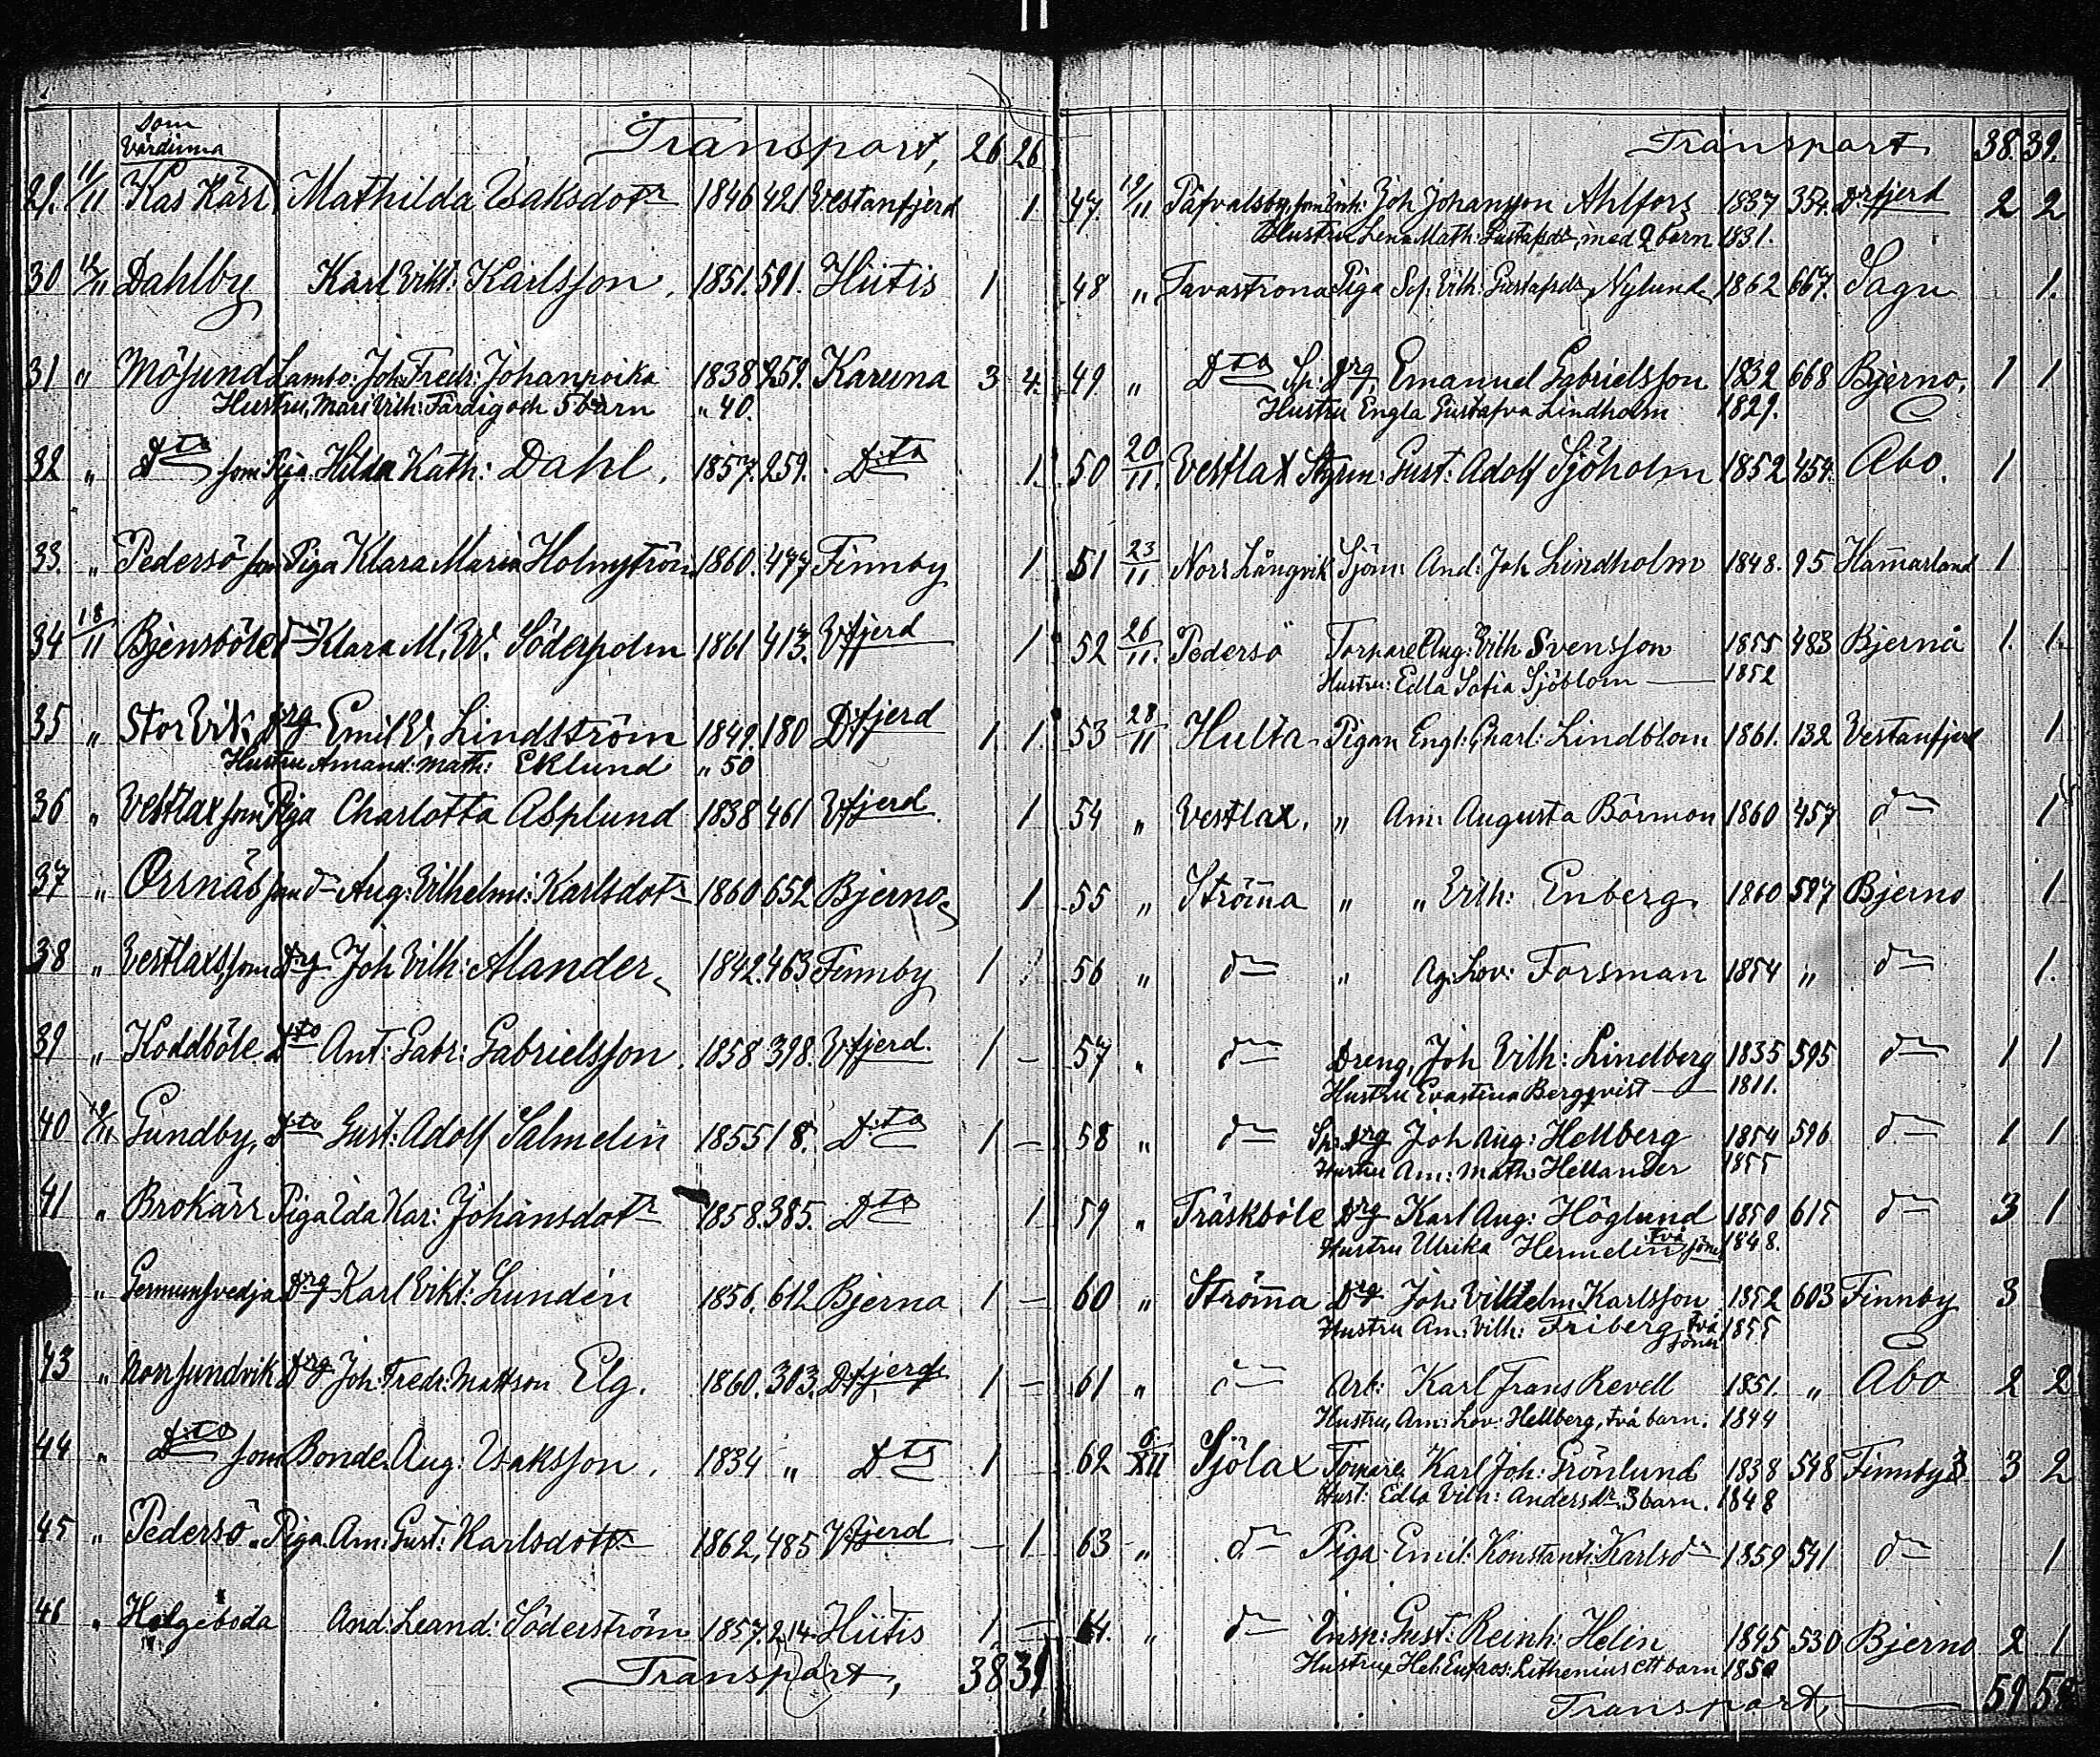 Transport, 26 26
som
Värdinna
29. 11/11 Kas Kärl Mathilda Isaksdotr 1846 421 Vestanfjerd 1
30 12/11 Dahlby Karl Vikt: Karlsson, 1851. 591. Hiitis 1
31 " Mösund Lambo: Joh Fredr: Johanpoika 1838 259. Karuna 3 4.
Hustru, Mari Vilh: Färdig och 5 barn " 40.
32 " Dto som Piga Hilda Kath: Dahl, 1857. 259. D:to 1
33. " Pedersö som Piga Klara Maria Holmström 1860. 477 Finnby 1
34 18/11 Bjensböle dn Klara M. W. Söderholm 1861 413. Vfjerd 1
35 " Stor Vik, Drg Emil V. Lindström 1849. 180 Dfjerd 1 1
Hustru Amand: Math: Eklund " 50
36 " Vestlax som Piga Charlotta Asplund 1838 461 Vfjerd 1
37 " Örsnäs som dn Aug: Vilhelmi: Karlsdotr 1860 652 Bjerno 1
38 " Vestlax som Drg Joh Vilh: Alander 1842. 463. Finnby 1
39 " Koddböle Dto Ant: Gabr: Gabrielsson. 1858 398. Vfjerd. 1 –
40 19/11 Gundby, Dto Gust: Adolf Salmelin 1855 18. D:to 1 –
41 " Brokärr Piga Ida Kar: Johansdotr 1858. 385. Dto 1
" Germundsvedja Drg Karl Vikt: Lundén 1856. 612 Bjerna 1 –
43 " Norrsundvik Drg Joh: Fredr: Mattson Elg. 1860. 303. Dfjerd 1 –
44 " D:to som Bonde Aug: Isaksson. 1834 " Dto 1
45 " Pedersö. Piga. Am: Gust: Karlsdottr 1862, 485 Vfjerd – 1
46 " Helgeboda And: Leand: Söderström 1857. 214. Hiitis 1 –
Transport, 38 39
Transport 38. 39.
47. 19/11 Påfvalsby, som Inh: Joh Johansson Ahlfors 1837 354. Drfjerd 2 2
Hustru Lena Math: Gustafsdr, med 2 barn 1831.
48 " Tavastrona Piga Sof: Vilh: Gustafsdr Nylund 1862 667. Sagu 1.
49. " Dto Sp: Drg. Emanuel Gabrielsson 1832 668 Bjerno. 1 1
Hustru Engla Gustafva Lindholm 1829.
50 20/11. Vestlax Styrm: Gust: Adolf Sjöholm 1852 454. Åbo. 1
51 23/11. Norr Långvik Sjöm: And: Joh Lindholm 1848. 95 Ham̄arland 1
52 26/11. Pedersö Torpare Aug: Vilh Svensson 1855 483 Bjernå 1. 1.
Hustru: Edla Sofia Sjöblom — 1852
53 28/11 Hulta Pigan Engl: Charl: Lindblom 1861. 132 Vestanfjerd 1
54 " Vestlax, " Am: Augusta Börmon 1860 457 dn 1
55 " Ström̄a " " Vilh: Enberg. 1860 597 Bjerno 1
56 " dn " Ag: Lov: Forsman 1854 " dn 1.
57 " dn Dreng, Joh Vilh: Lindberg 1835 595 dn 1 1
Hustru Evastina Bergqvist — 1811.
58 " dn Sp: Drg Joh Aug: Hellberg 1854 596 dn 1 1
Hustru Am: Math: Hellander 1855
59 " Träskböle Drg Karl Aug: Höglund 1850 615 dn 3 1
Hustru Ulrika Hermelin två söner 1848.
60 " Ström̄a Drg Joh: Vilhelm Karlsson 1852 603 Finnby 3
Hustru Am: Vilh: Friberg, två söner 1855
61 " dn Arb: Karl Frans Revell 1851. " Åbo 2 2
Hustru, Am: Lov: Hellberg, två barn. 1844
62 6/XII Sjölax Torpare Karl Joh: Grönlund 1838 548 Finnby 3 2
Hust: Edla Vilh: Andersdr 3 barn. 1848
63 " dn Piga Emil: Konstanti: Karlsdn 1859 541 dn 1
64. " dn Insp: Gust: Reinh: Helin 1845 530 Bjerno 2 1
Hustru Hel: Eufros: Lithenius ett barn 1850
Transport, — 59 54